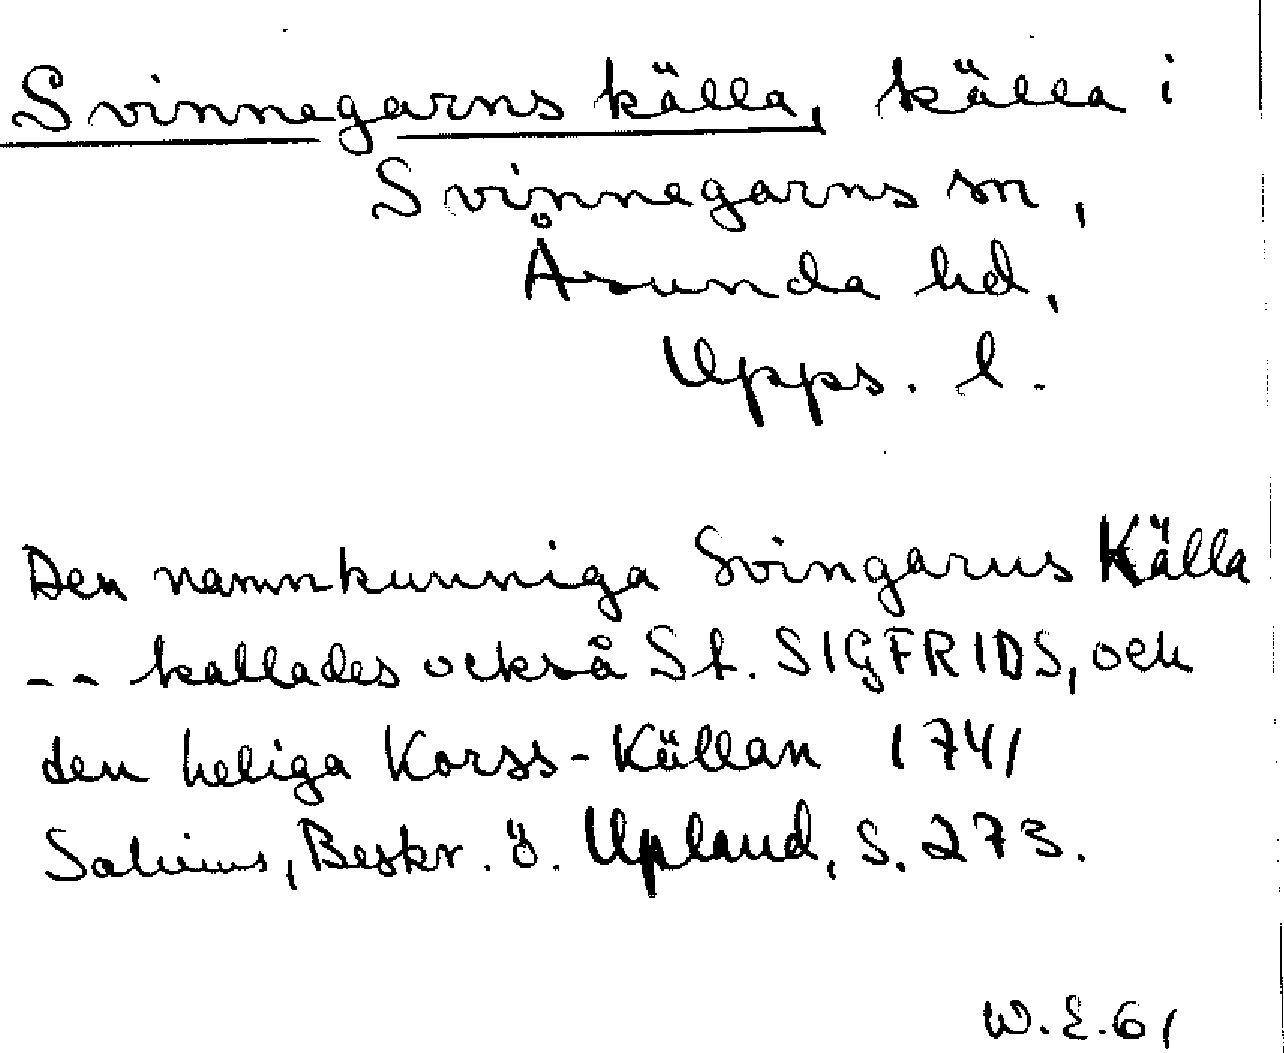 Svinnegarns källa, källa i
Svinnegarns sn,
Åsunda hd,
Upps. l.
Den namnkunniga Svingarns Källa
-- kallades också St. SIGFRIDS, och
den heliga Korss-Källan 1741
Salvius, Beskr. ö. Upland, S. 273.
W.E.61